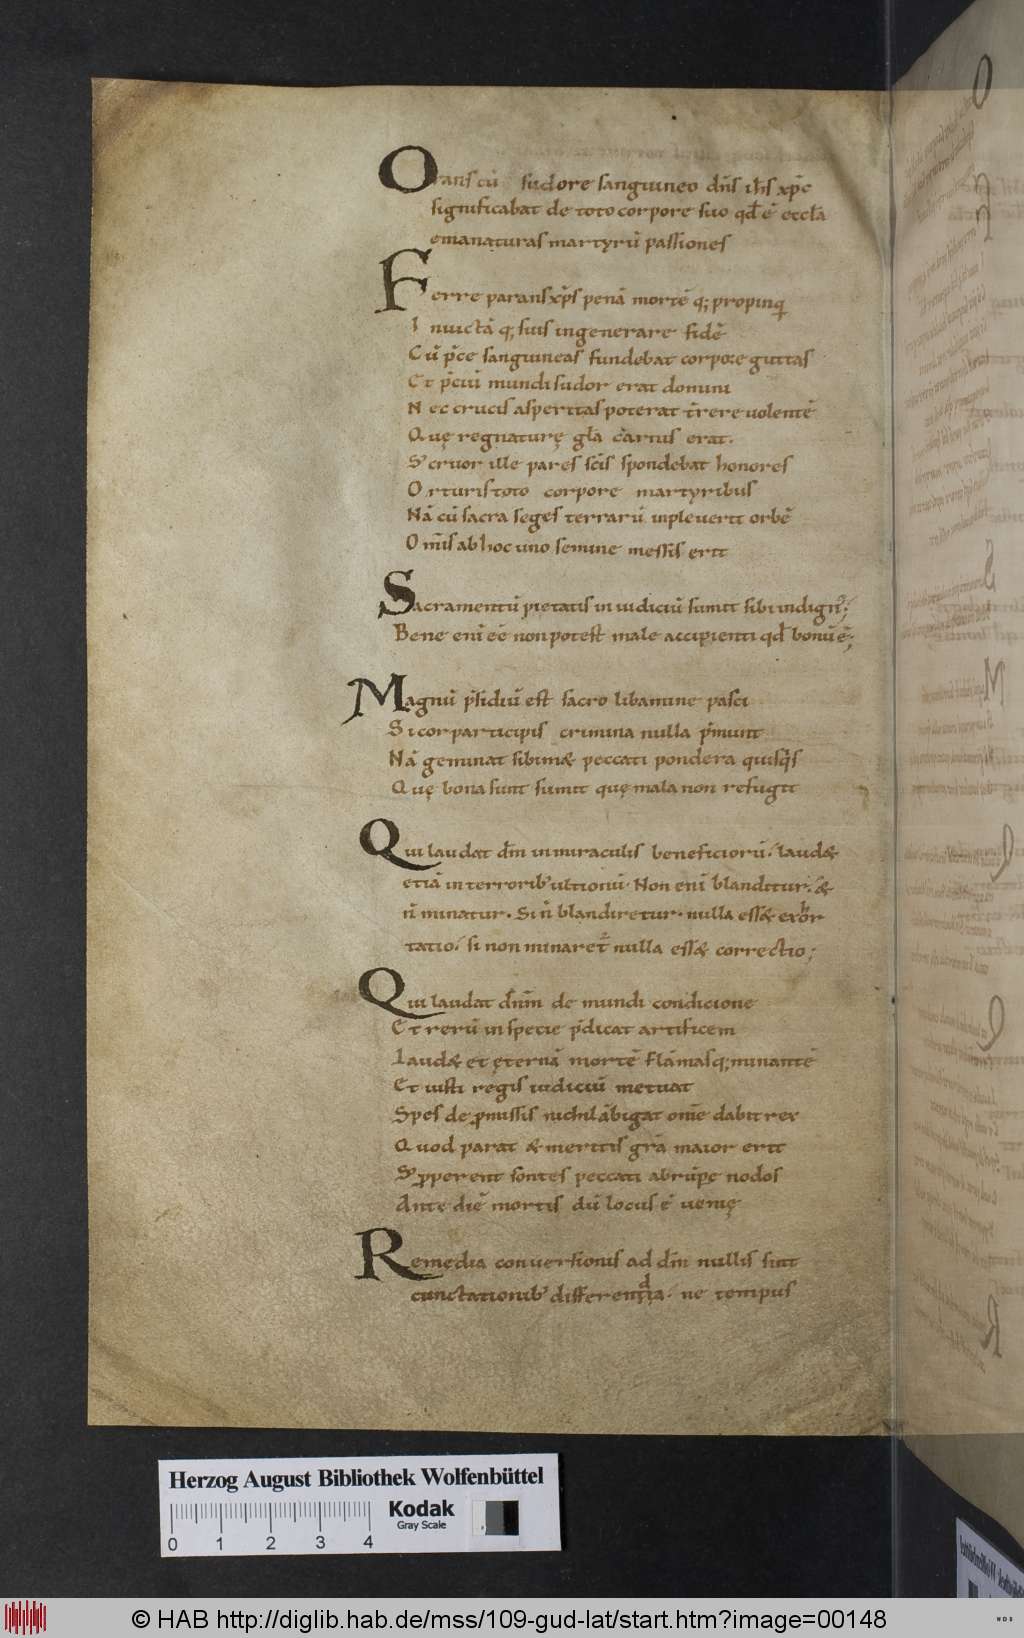 Orans cū sudore sanguineo dn̄s ih̄s xp̄c
significabat de toto corpore suo qd̄ ē eccl̄a
emanaturas martyrū passiones
Ferre parans xp̄s penā mortē q; propinq
Inuictā q; suis ingenerare fidē
Cū p̄ce sanguineas fundebat corpore guttas
Et p̄ciū mundi sudor erat domini
Nec crucis asperitas poterat t̄rere uolentē
Quę regnaturę gl̄a carnis erat.
S; cruor ille pares sc̄is spondebat honores
Orturis toto corpore martyribus
Nā cū sacra seges terrarū inpleuerit orbē
Om̄is ab hoc uno semine messis erit
Sacramentū pietatis in iudiciū sumit sibi indign';
Bene eni ēē non potest male accipienti qd̄ bonū ē;
Magnū p̄sidiū est sacro libamine pasci
Si cor participis crimina nulla p̄munt
Nā geminat sibimet peccati pondera quisq̄s
Quę bona sunt sumit quę mala non refugit
Qui laudat dm̄ in miraculis beneficiorū. laudet
etiā in terrorib; ultionū. Non enī blanditur. &
n̄ minatur. Si n̄ blandiretur. nulla esset exhor
tatio. si non minaret' nulla esset correctio;
Qui laudat dn̄m de mundi condicione
Et rerū in specie p̄dicat artificem
Laudet et ęternā mortē flāmasq; minantē
Et iusti regis iudiciū metuat
Spes de p̄missis nichil ābigat om̄e dabit rex
Quod parat & meritis gr̄a maior erit
S; properent sontes peccati abrūpe nodos
Ante diē mortis dū locus ē uenię
Remedia conuersionis ad dm̄ nullis sint
cunctationib; differenda. ne tempus
Herzog August Bibliothek Wolfenbüttel
Kodak
Gray Scale
0 1 2 3 4
© HAB http://diglib.hab.de/mss/109-gud-lat/start.htm?image=00148